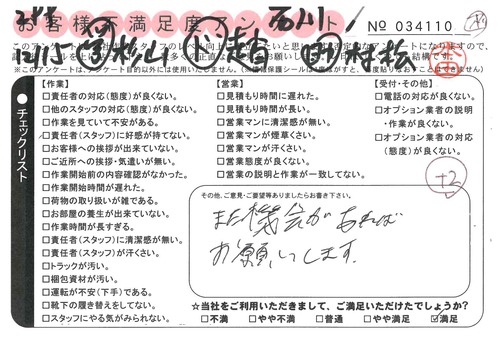 お客様不満足度アンケート
No 034110
※このアンケートは、アンケート目的以外には使用いたしません。
チェックリスト
【作業】
□責任者の対応(態度)が良くない。
□他のスタッフの対応(態度)が良くない。
□作業を見ていて不安がある。
□責任者(スタッフ)に好感が持てない。
□お客様への挨拶が出来ていない。
□ご近所への挨拶・気遣いが無い。
□作業開始前の内容確認がなかった。
□作業開始時間が遅れた。
□荷物の取り扱いが雑である。
□お部屋の養生が出来ていない。
□作業時間が長すぎる。
□責任者(スタッフ)に清潔感が無い。
□責任者(スタッフ)が汗くさい。
□トラックが汚い。
□梱包資材が汚い。
□運転が不安(下手)である。
□靴下の履き替えをしてない。
□スタッフにやる気がみられない。
【営業】
□見積もり時間に遅れた。
□見積もり時間が長い。
□営業マンに清潔感が無い。
□営業マンが煙草くさい。
□営業マンが汗くさい。
□営業態度が良くない。
□営業の説明と作業が一致してない。
【受付・その他】
□電話の対応が良くない。
□オプション業者の説明
・作業が良くない。
□オプション業者の対応
(態度)が良くない。
+2
その他、ご意見・ご要望等ありましたらお書き下さい。
また機会があれば
お願いします。
☆当社をご利用いただきまして、ご満足いただけたでしょうか?
□不満 □やや不満 □普通 □やや満足 ☑満足